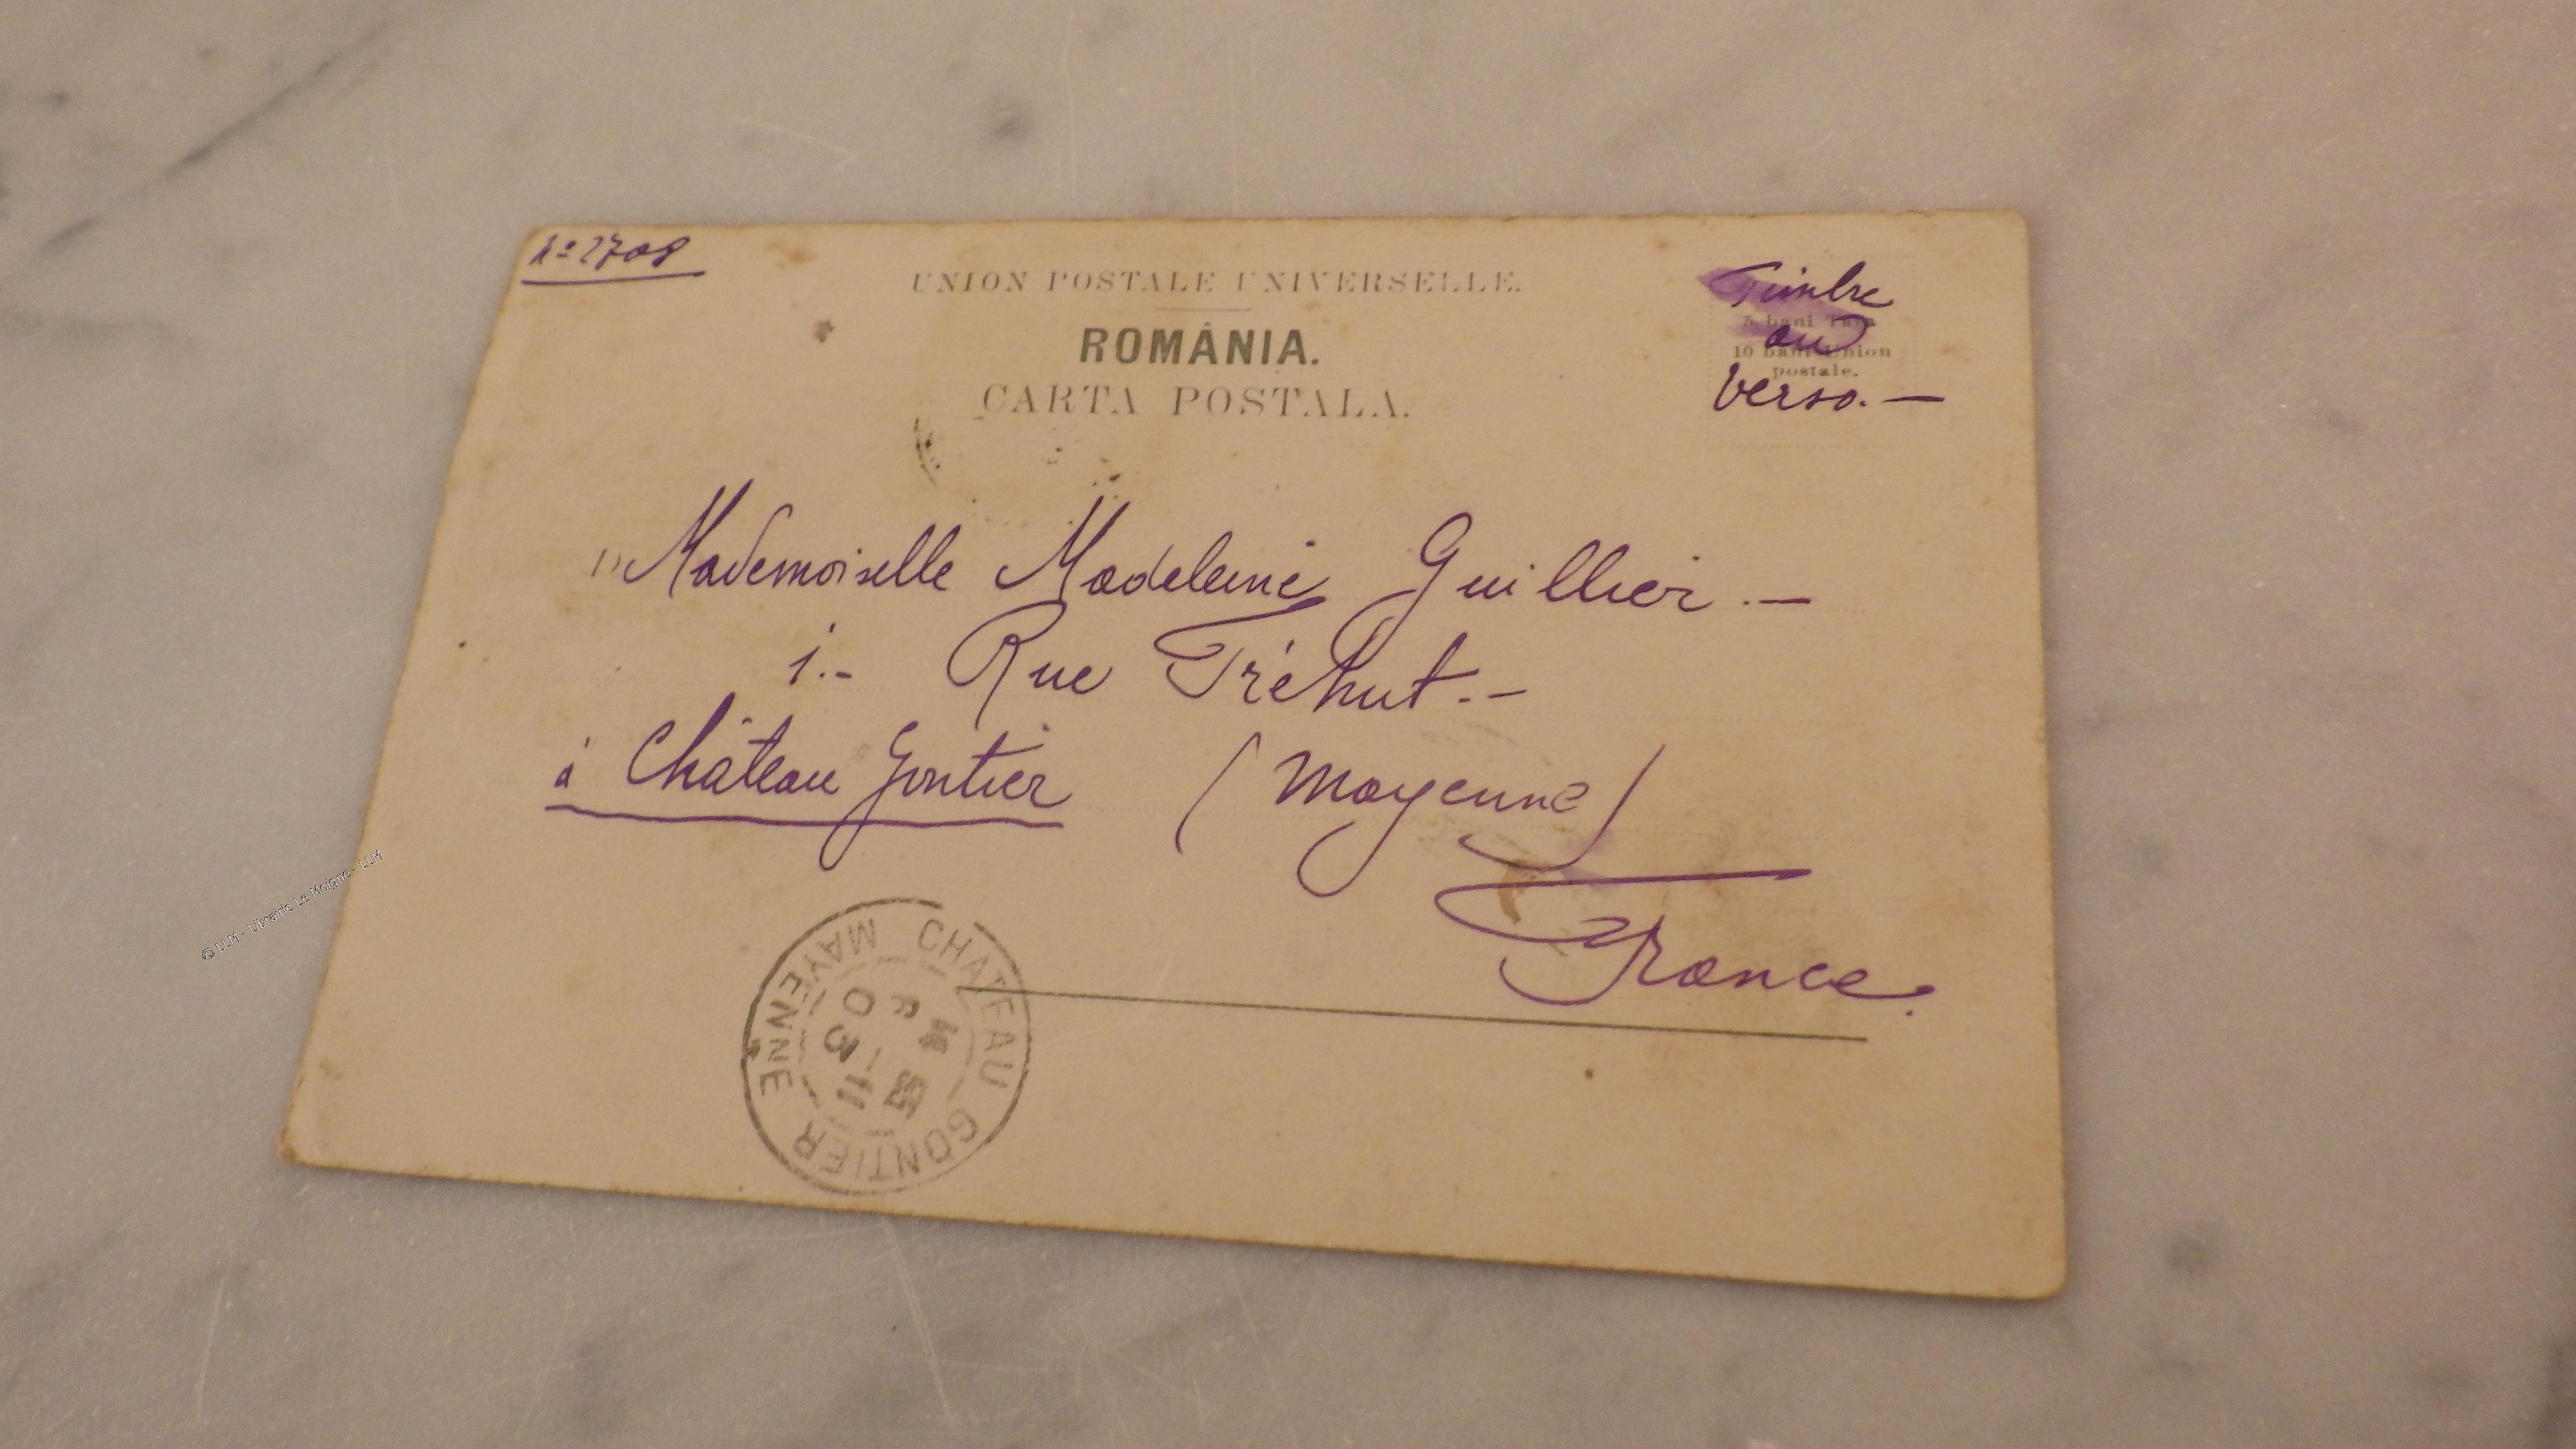 Nº 2708
UNION POSTALE UNIVERSELLE.
ROMÂNIA.
CARTA POSTALA.
Timbre
5 bani Tara
au
10 bani Union
postale.
verso. —
Mademoiselle Madeleine Guillier. —
1. - Rue Tréhut. -
à Château Gontier (Mayenne)
France.
CHATEAU GONTIER
MAYENNE
11 - 03
© LLM - Librairie Le Moigne - LLM